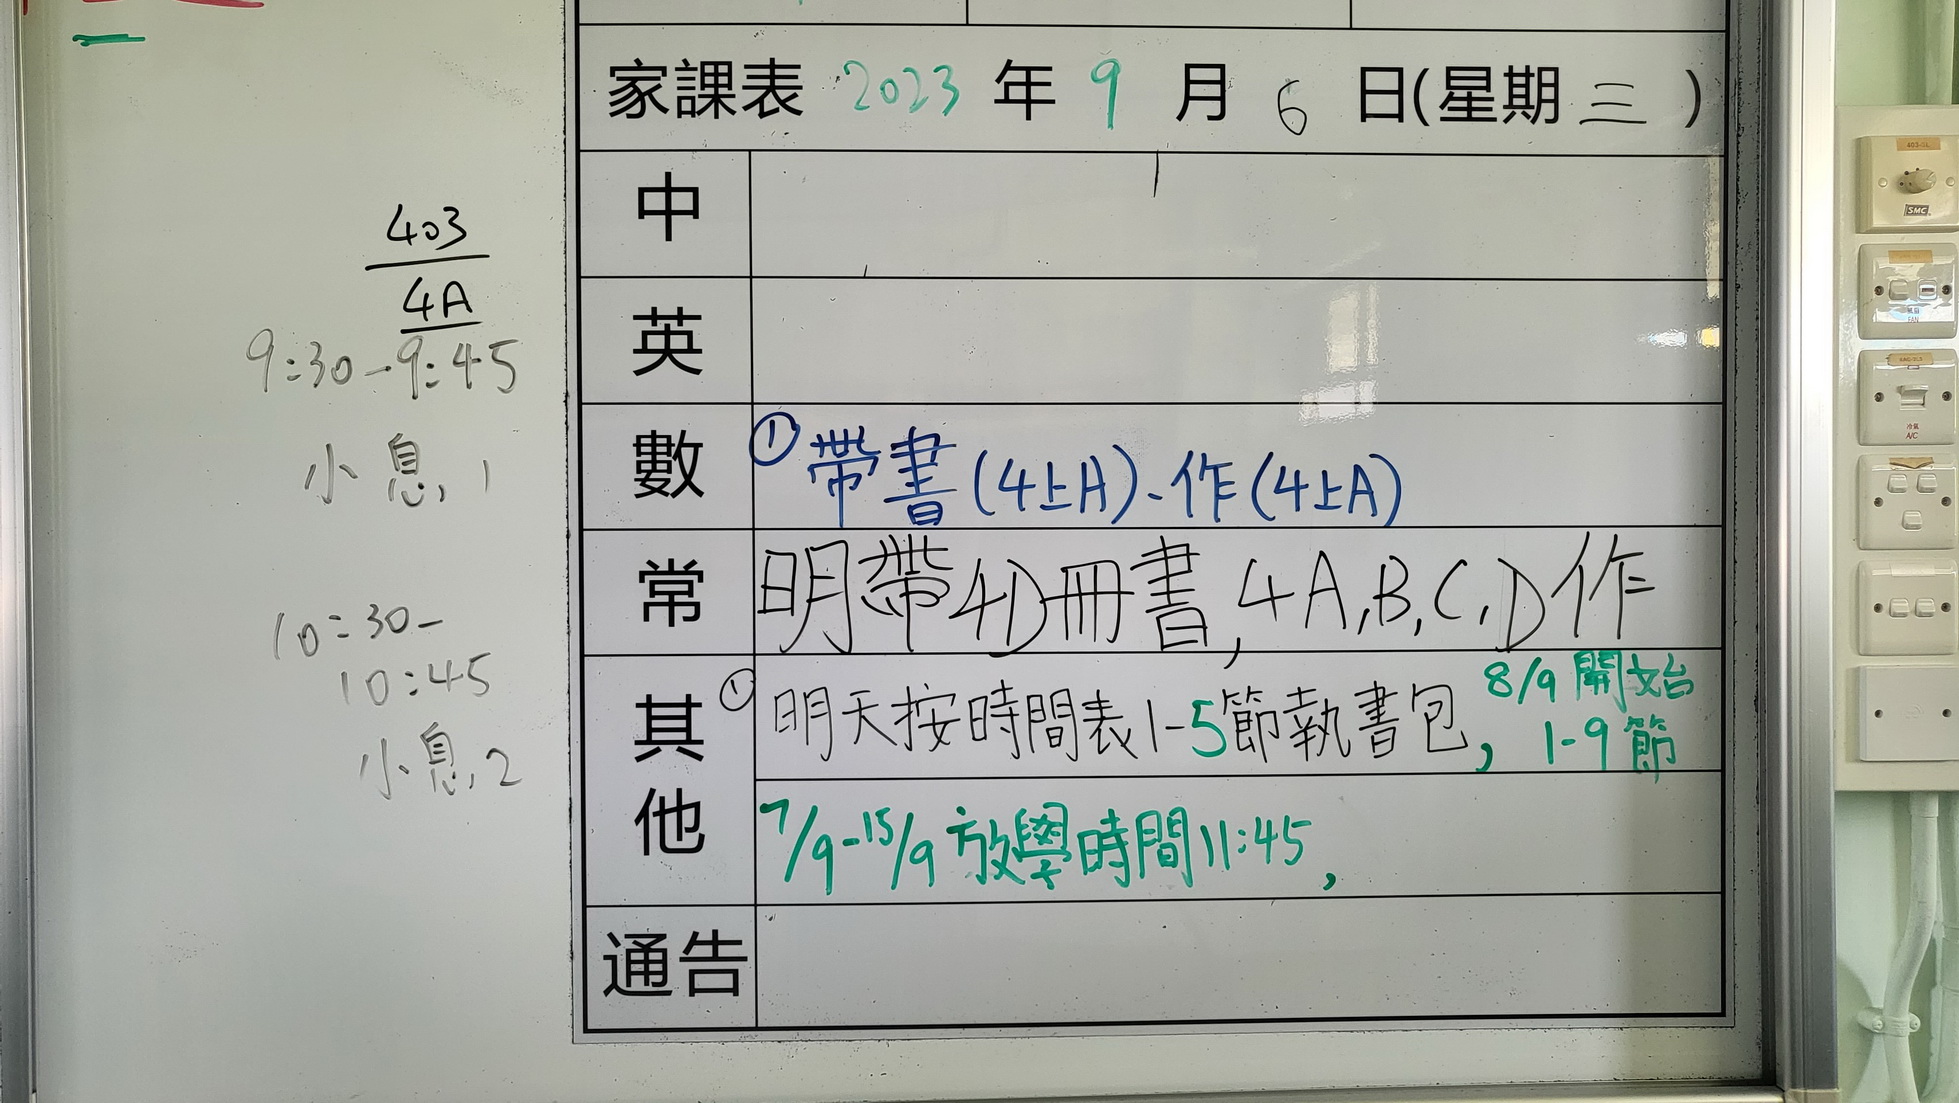 403
4A
9:30-9:45
小息1
10:30-
10:45
小息2
家課表 2023 年 9 月 6 日(星期三)
中
英
數 ① 帶書(4上A)、作(4上A)
常 明帶4D冊書,4A,B,C,D作
其他 ① 明天按時間表1-5節執書包, 8/9 開始
1-9節
7/9-15/9 放學時間11:45,
通告
SMC
風扇
FAN
冷氣
A/C